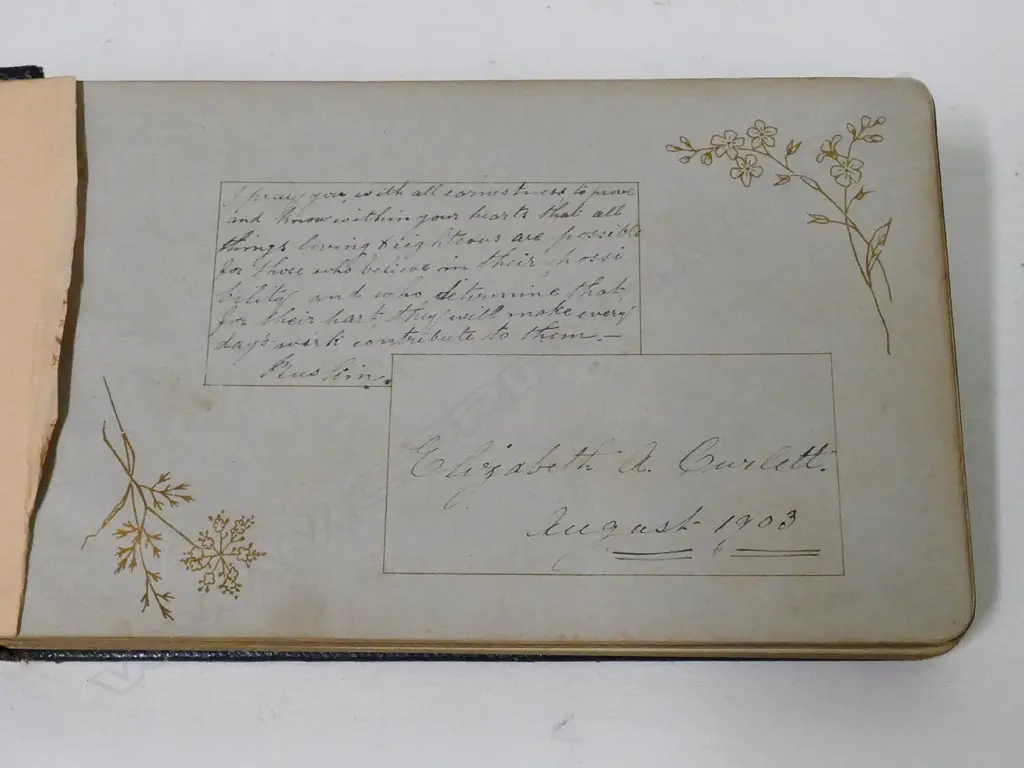 I pray you, with all earnestness to prove
and know within your hearts that all
things loving & righteous are possible
for those who believe in their possi
bility and who determine that
for their part they will make every
day's work contribute to them. —
Ruskin.
Elizabeth A. Curlett.
August 1903